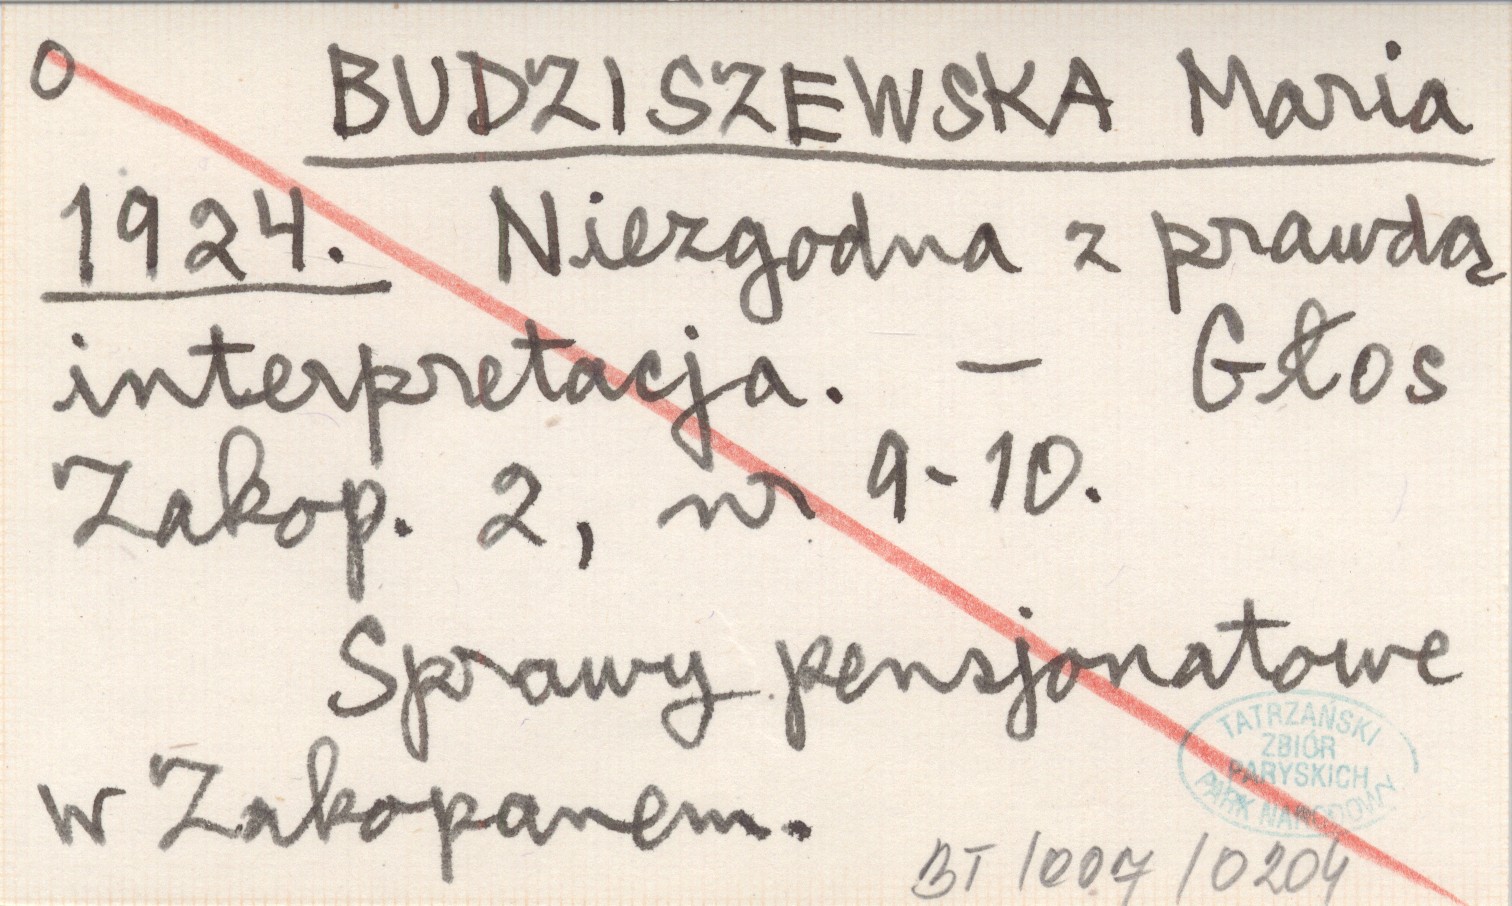 O BUDZISZEWSKA Maria
1924. Niezgodna z prawdą
interpretacja. – Głos
Zakop. 2, nr 9-10.
Sprawy pensjonatowe
w Zakopanem.
TATRZAŃSKI
ZBIÓR
PARYSKICH
PARK NARODOWY
BT/007/0204